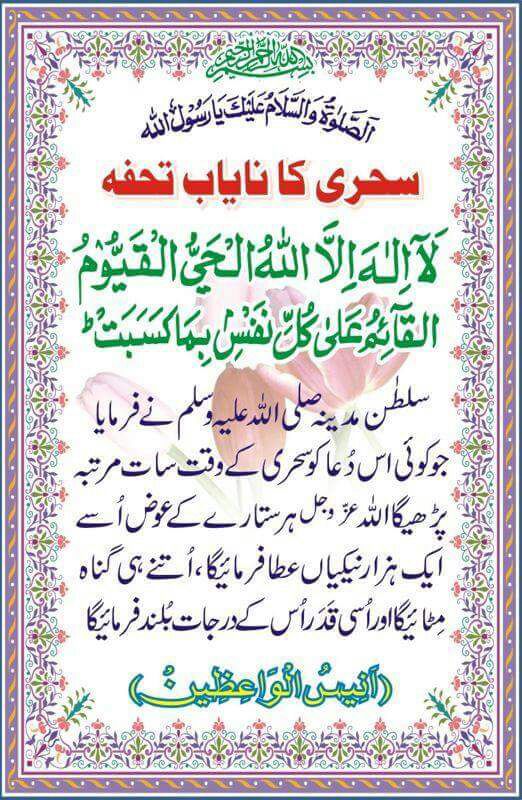 بسم الله الرحمن الرحيم
الصَّلٰوةُ وَالسَّلَامُ عَلَيْكَ يَا رَسُولَ الله
سحری کا نایاب تحفہ
لَآ اِلٰهَ اِلَّا اللهُ الْحَيُّ الْقَيُّوْمُ
الْقَآئِمُ عَلٰى كُلِّ نَفْسٍۭ بِمَا كَسَبَتْ ؕ
سلطٰنِ مدینہ صلی اللہ علیہ وسلم نے فرمایا
جو کوئی اس دُعا کو سحری کے وقت سات مرتبہ
پڑھیگا اللہ عزّ وجل ہر ستارے کے عوض اُسے
ایک ہزار نیکیاں عطا فرمائیگا، اُتنے ہی گناہ
مِٹائیگا اور اُسی قَدَر اُس کے درجات بُلند فرمائیگا
(اَنِيسُ الْوَاعِظِين)